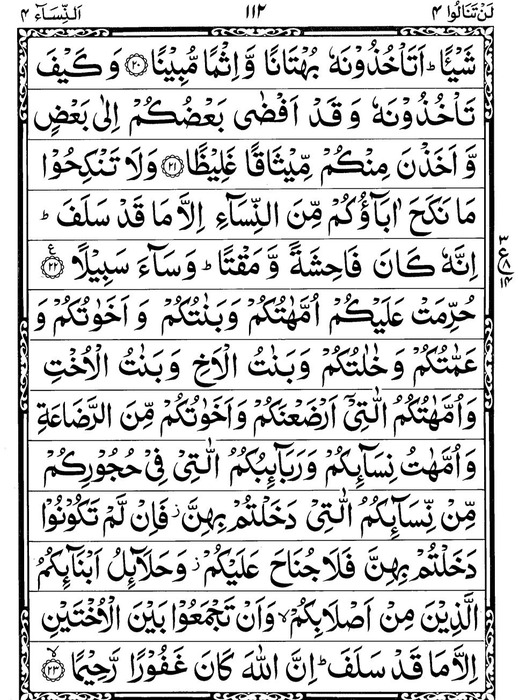 لَنْ تَنَالُوا ٤ ١١٢ اَلنِّسَآء ٤
شَيْـًٔا ؕ اَتَاْخُذُوْنَهٗ بُهْتَانًا وَّ اِثْمًا مُّبِيْنًا ۝٢٠ وَ كَيْفَ
تَاْخُذُوْنَهٗ وَ قَدْ اَفْضٰى بَعْضُكُمْ اِلٰى بَعْضٍ
وَّ اَخَذْنَ مِنْكُمْ مِّيْثَاقًا غَلِيْظًا ۝٢١ وَ لَا تَنْكِحُوْا
مَا نَكَحَ اٰبَآؤُكُمْ مِّنَ النِّسَآءِ اِلَّا مَا قَدْ سَلَفَ ؕ
اِنَّهٗ كَانَ فَاحِشَةً وَّ مَقْتًا ؕ وَ سَآءَ سَبِيْلًا ۝٢٢ ع
٣ ع ٨ ١٤
حُرِّمَتْ عَلَيْكُمْ اُمَّهٰتُكُمْ وَ بَنٰتُكُمْ وَ اَخَوٰتُكُمْ وَ
عَمّٰتُكُمْ وَ خٰلٰتُكُمْ وَ بَنٰتُ الْاَخِ وَ بَنٰتُ الْاُخْتِ
وَ اُمَّهٰتُكُمُ الّٰتِيْۤ اَرْضَعْنَكُمْ وَ اَخَوٰتُكُمْ مِّنَ الرَّضَاعَةِ
وَ اُمَّهٰتُ نِسَآىِٕكُمْ وَ رَبَآىِٕبُكُمُ الّٰتِيْ فِيْ حُجُوْرِكُمْ
مِّنْ نِّسَآىِٕكُمُ الّٰتِيْ دَخَلْتُمْ بِهِنَّ ؗ فَاِنْ لَّمْ تَكُوْنُوْا
دَخَلْتُمْ بِهِنَّ فَلَا جُنَاحَ عَلَيْكُمْ ؗ وَ حَلَآىِٕلُ اَبْنَآىِٕكُمُ
الَّذِيْنَ مِنْ اَصْلَابِكُمْ ۙ وَ اَنْ تَجْمَعُوْا بَيْنَ الْاُخْتَيْنِ
اِلَّا مَا قَدْ سَلَفَ ؕ اِنَّ اللّٰهَ كَانَ غَفُوْرًا رَّحِيْمًا ۝٢٣ ۙ